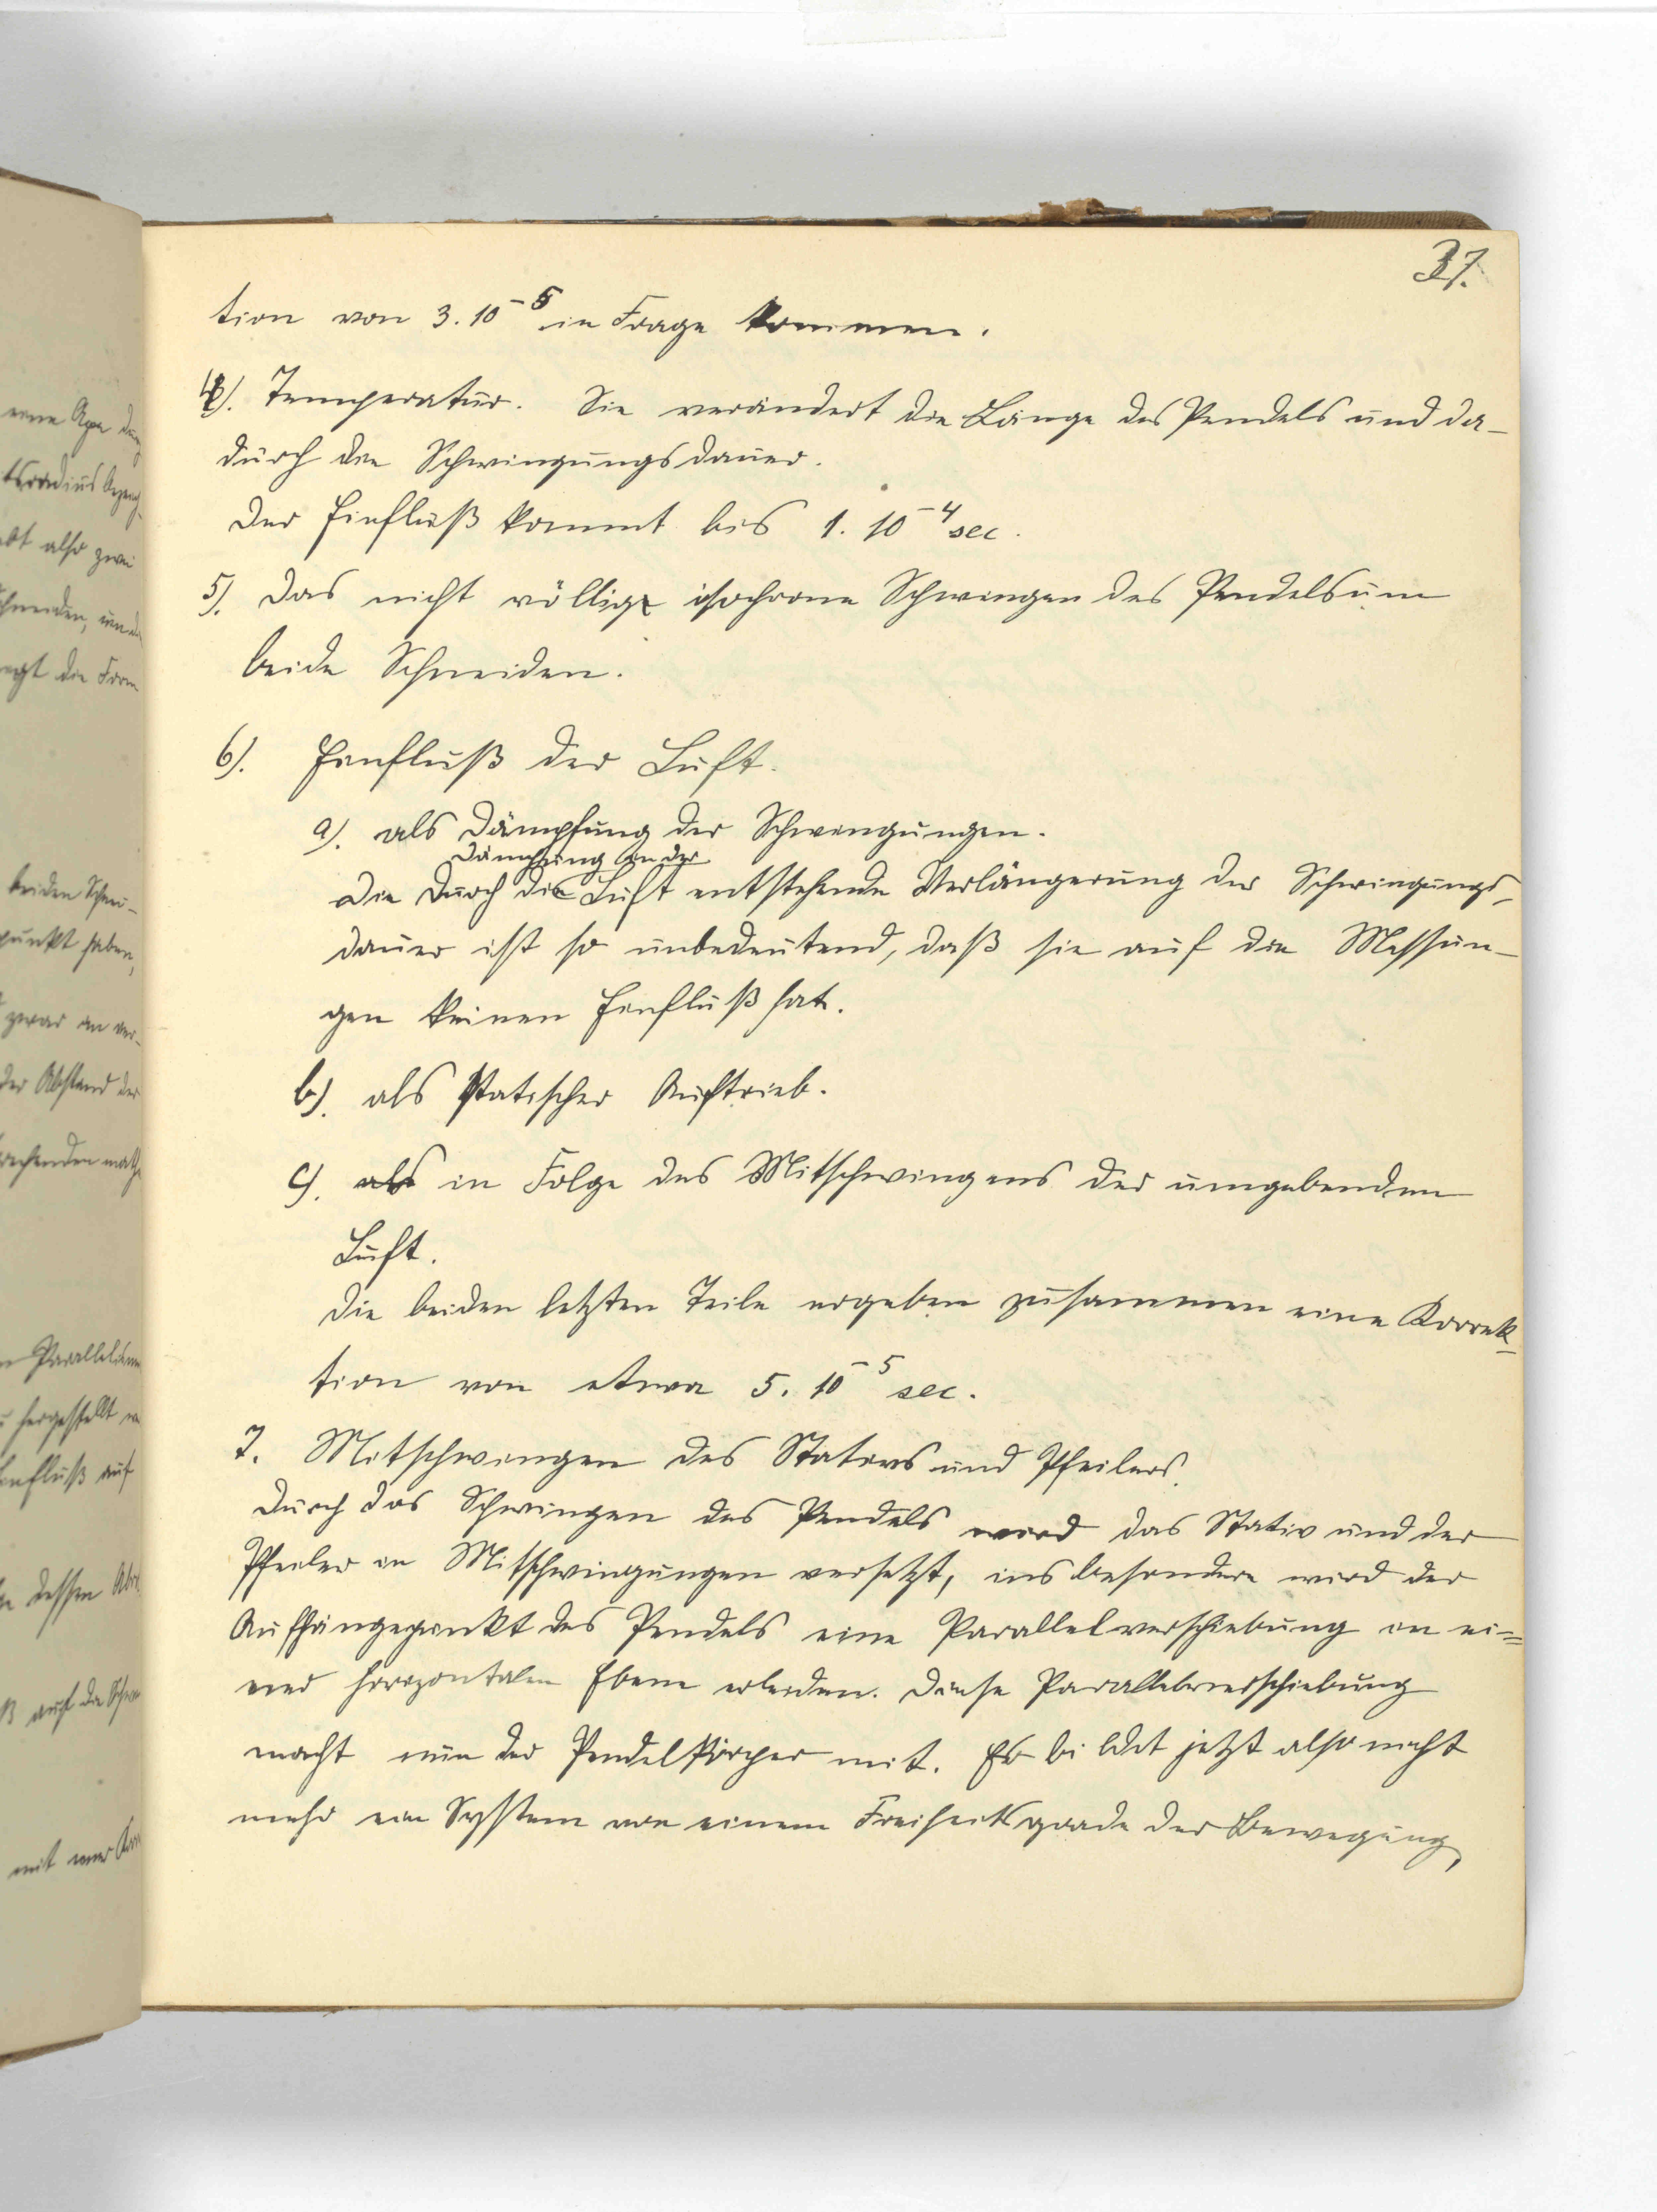 37.
tion von 3. 10⁻⁵ in Frage kommen.
4). Temperatur. Sie verändert die Länge des Pendels und da-
durch die Schwingungsdauer.
Der Einfluß kommt bis 1. 10⁻⁴ sec.
5). Das nicht völlig isochrone Schwingen des Pendels um
beide Schneiden.
6). Einfluß der Luft.
a). als Dämpfung der Schwingungen.
Dämpfung in der
Die durch die Luft entstehende Verlängerung der Schwingungs-
dauer ist so unbedeutend, daß sie auf die Messun-
gen keinen Einfluß hat.
b). als statischer Auftrieb.
c). als in Folge des Mitschwingens der umgebenden
Luft.
Die beiden letzten Teile ergeben zusammen eine Korrek-
tion von etwa 5. 10⁻⁵ sec.
7. Mitschwingen des Stativs und Pfeilers.
Durch das Schwingen des Pendels wird das Stativ und der
Pfeiler in Mitschwingungen versetzt, insbesondere wird der
Aufhängepunkt des Pendels eine Parallelverschiebung in ei-
ner horizontalen Ebene erleiden. Diese Parallelverschiebung
macht nun der Pendelkörper mit. Er bildet jetzt also nicht
mehr ein System von einem Freiheitsgrade der Bewegung,